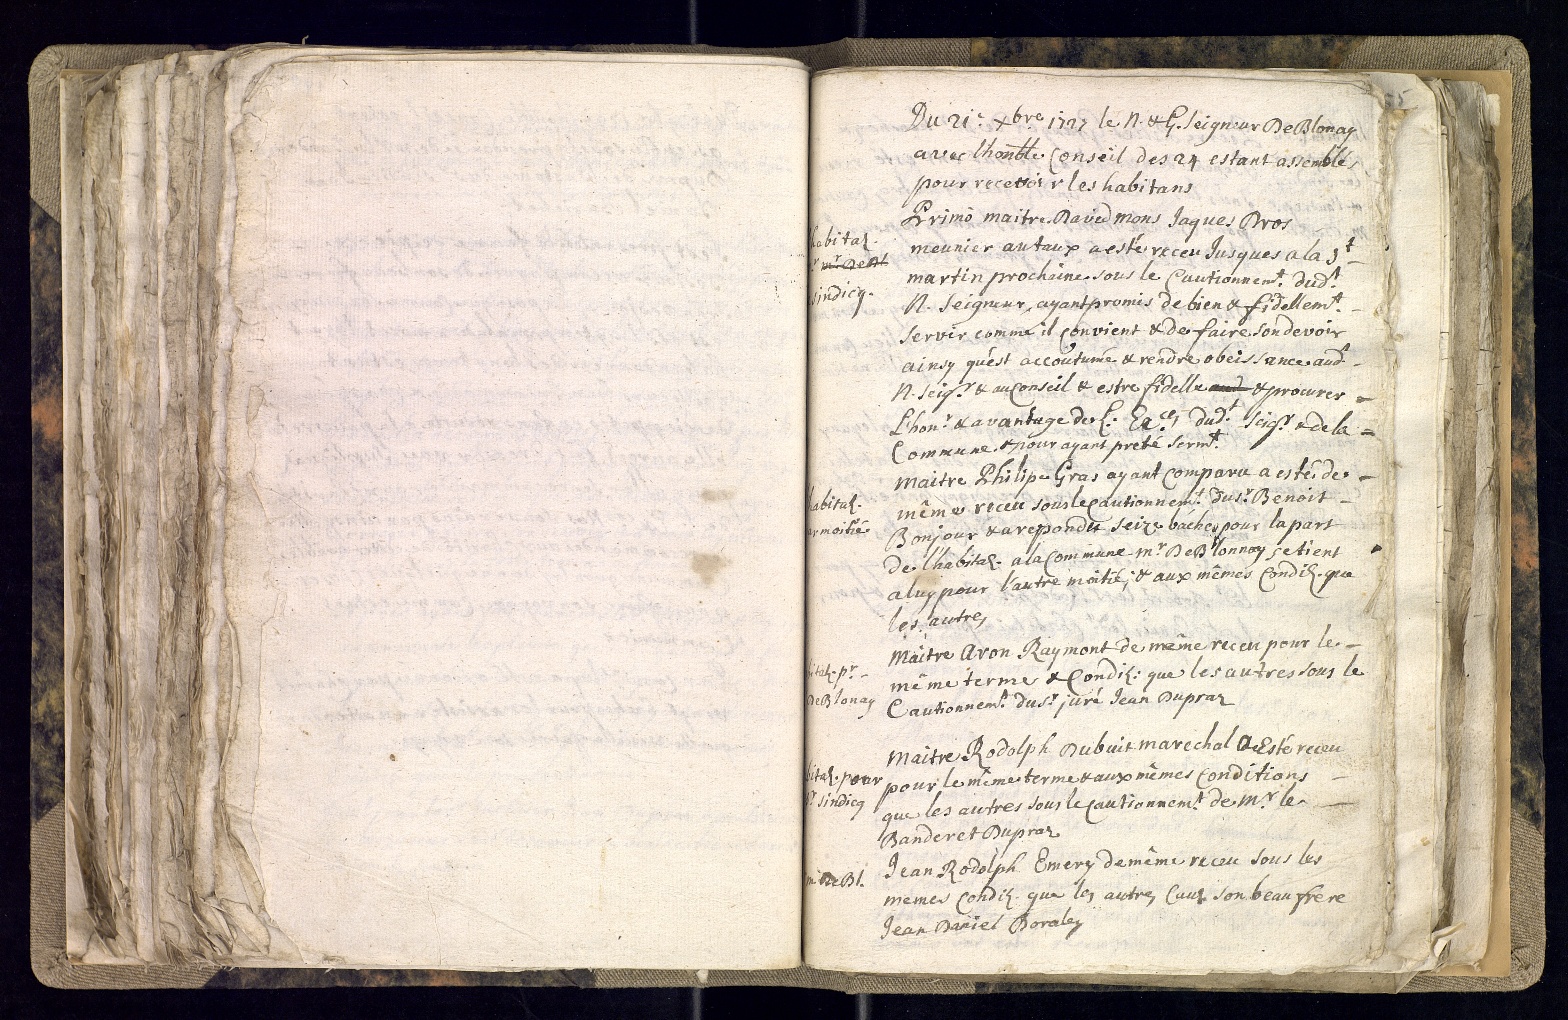 Du 21e xbre 1727 le N. & G. Seigneur De Blonay
avec lhonble Conseil des 24 estant assemblé
pour recevoir les habitans
Primo maitre David mons Jaques Bros
meunier autaux a esté receu Jusques a la St
martin prochaine sous le Cautionnemt dudt
N. Seigneur, ayant promis de bien & fidellemt
servir comme il convient & de faire son devoir
ainsy qu'est accoutumé & rendre obeissance audt
N. Seigr & au Conseil & estre fidelle & procurer
L'honr & avantage de L. Ex.ces dudt Seigr & de la
Commune & pour ayant preté Sermt
habitaõ.
sindicq.
Maitre Philipe Gras ayant comparu a esté de
même receu sous le cautionnemt du Sr Benoit
Bonjour & a repondu seize baches pour la part
de l'habitaõ. a la Commune mr De Blonnay se tient
a luy pour l'autre moitié, & aux mêmes Condiõ. que
les autres
habitaõ.
moitié
Maitre Aron Raymont de même receu pour le
même terme & Condiõ: que les autres sous le
Cautionnemt du Sr juré Jean Dupraz
pr
De Blonay
Maitre Rodolph Dubuit marechal a Esté receu
pour le même terme & aux mêmes Conditions
que les autres sous le cautionnemt de Mr le
Banderet Dupraz
pour
sindicq
Jean Rodolph Emery de même receu sous les
memes Condiõ. que les autres Cauõ son beaufrere
Jean Daniel Boraley
De Bl.